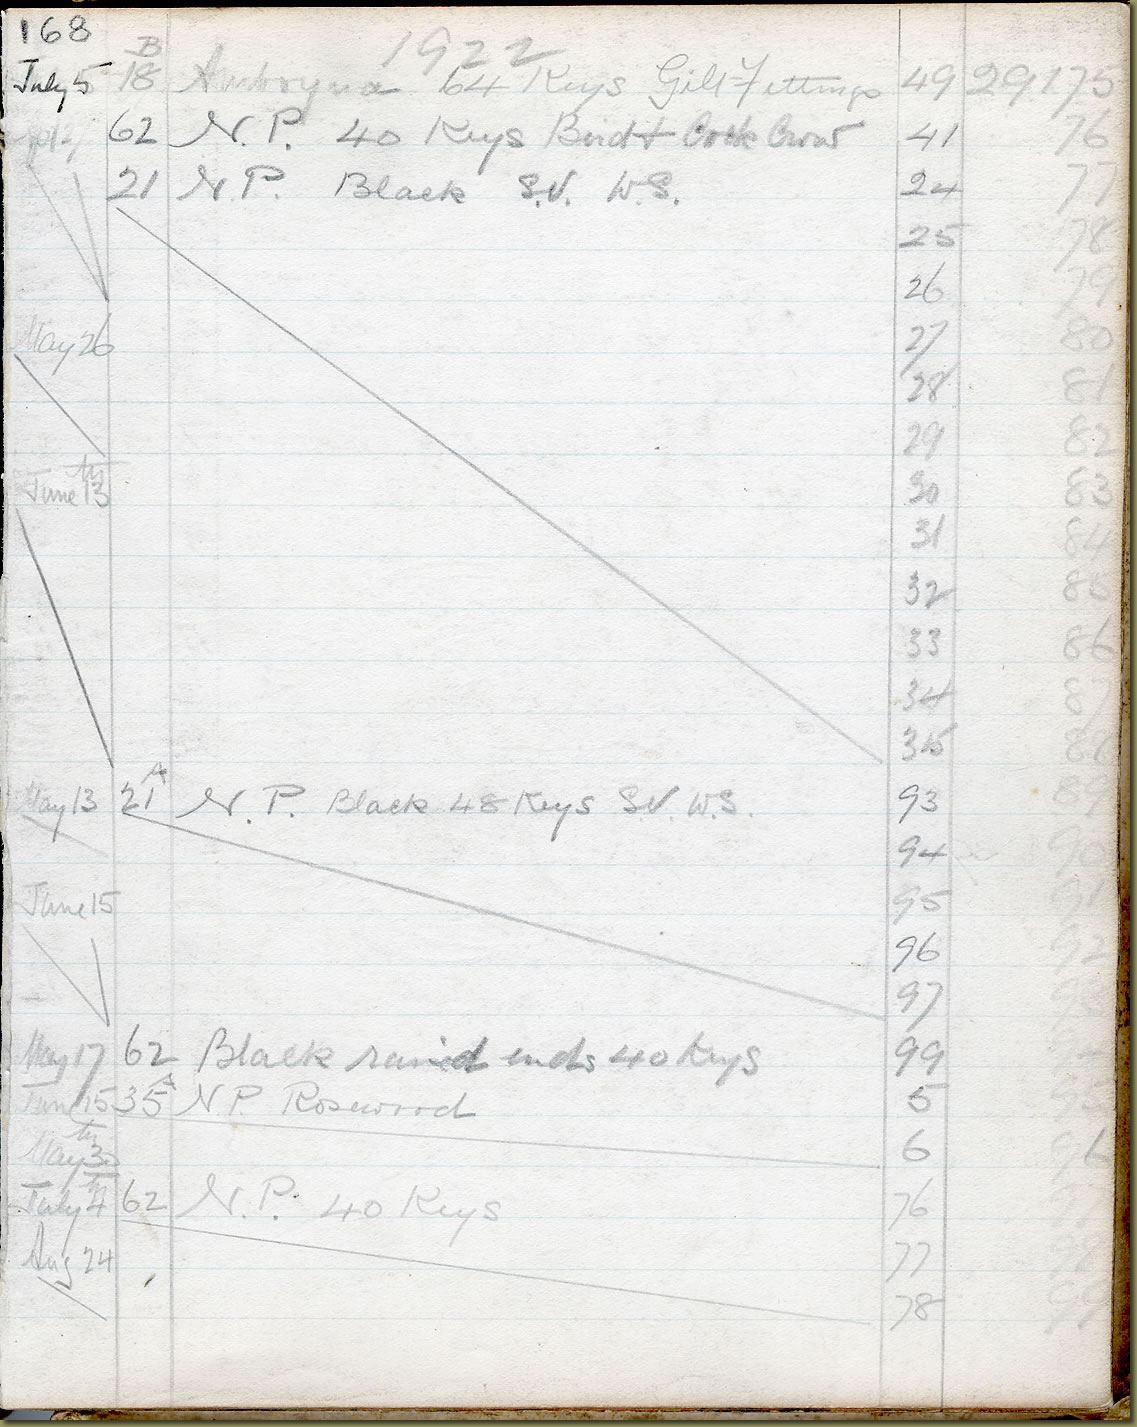 168
1922
July 5 18 B Amboyna 64 Keys Gilt Fittings 49 29175
62 N.P. 40 Keys Bird & Cock Crow 41 76
21 N.P. Black S.V. W.S. 24 77
25 78
26 79
May 26 27 80
28 81
29 82
June 13th 30 83
31 84
32 85
33 86
34 87
35 88
May 13 21 A N.P. Black 48 Keys S.V. W.S. 93 89
94 90
June 15 95 91
96 92
97
May 17 62 Black raised ends 40 Keys 99
June 15 35 A N P. Rosewood 5 95
May 30th 6 96
July 4th 62 N.P. 40 Keys 76
Aug 24 77 98
78 99